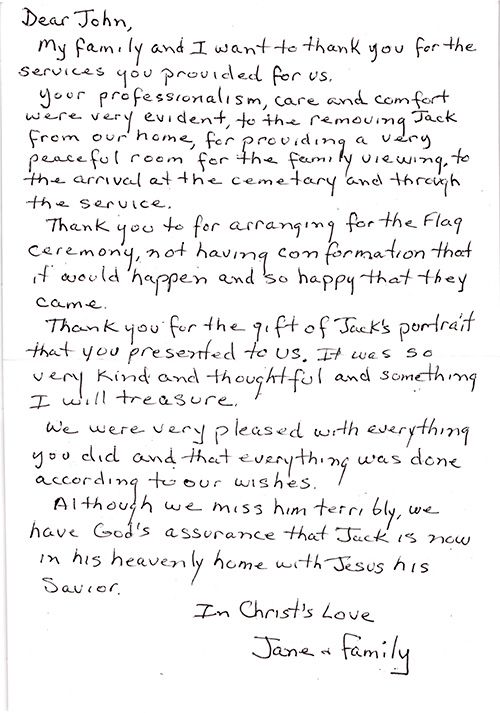 Dear John,
My family and I want to thank you for the
services you provided for us.
Your professionalism, care and comfort
were very evident, to the removing Jack
from our home, for providing a very
peaceful room for the family viewing, to
the arrival at the cemetary and through
the service.
Thank you to for arranging for the Flag
ceremony, not having conformation that
it would happen and so happy that they
came.
Thank you for the gift of Jack's portrait
that you presented to us. It was so
very kind and thoughtful and something
I will treasure.
We were very pleased with everything
you did and that everything was done
according to our wishes.
Although we miss him terribly, we
have God's assurance that Jack is now
in his heavenly home with Jesus his
Savior.
In Christ's Love
Jane & family